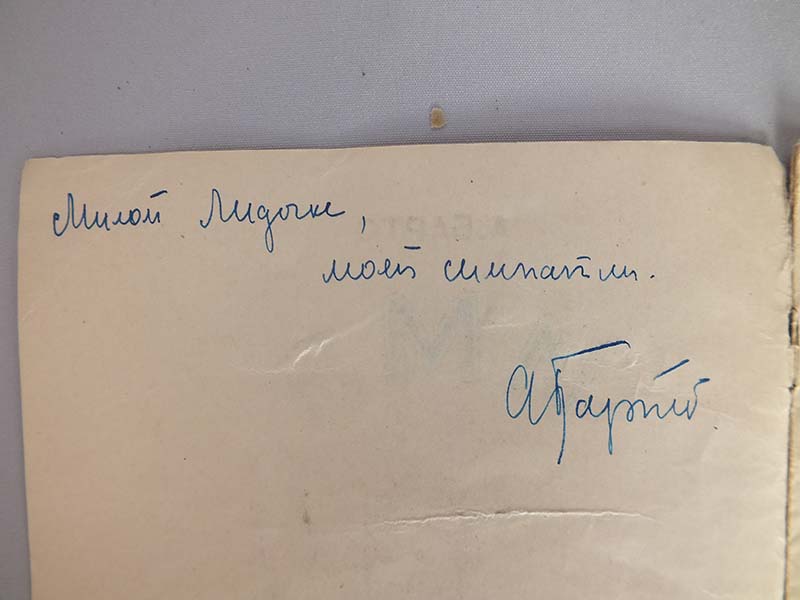 Милой Лидочке,
моей симпатии.
АБарто